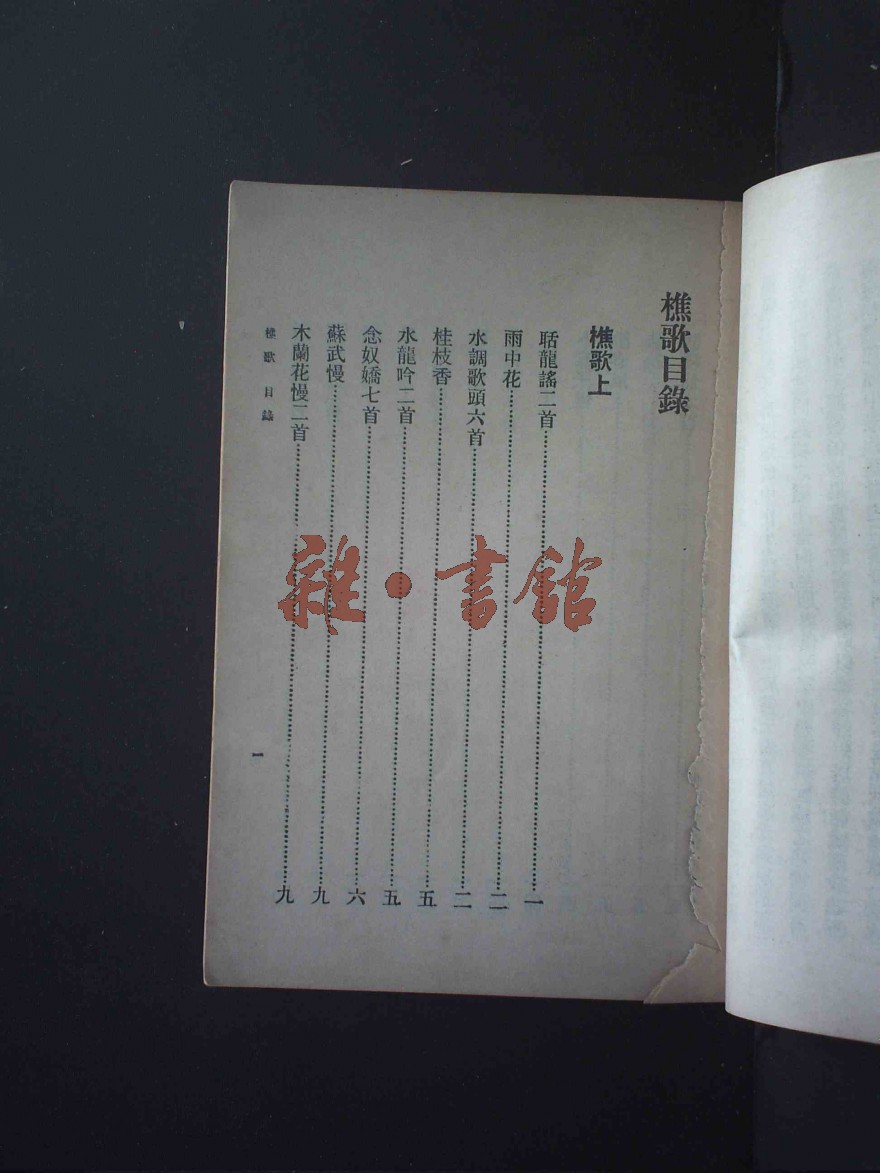 樵歌目錄
樵歌上
聒龍謠二首⋯⋯一
雨中花⋯⋯二
水調歌頭六首⋯⋯二
桂枝香⋯⋯五
水龍吟二首⋯⋯五
念奴嬌七首⋯⋯六
蘇武慢⋯⋯九
木蘭花慢二首⋯⋯九
樵歌 目錄
一
雜·書館